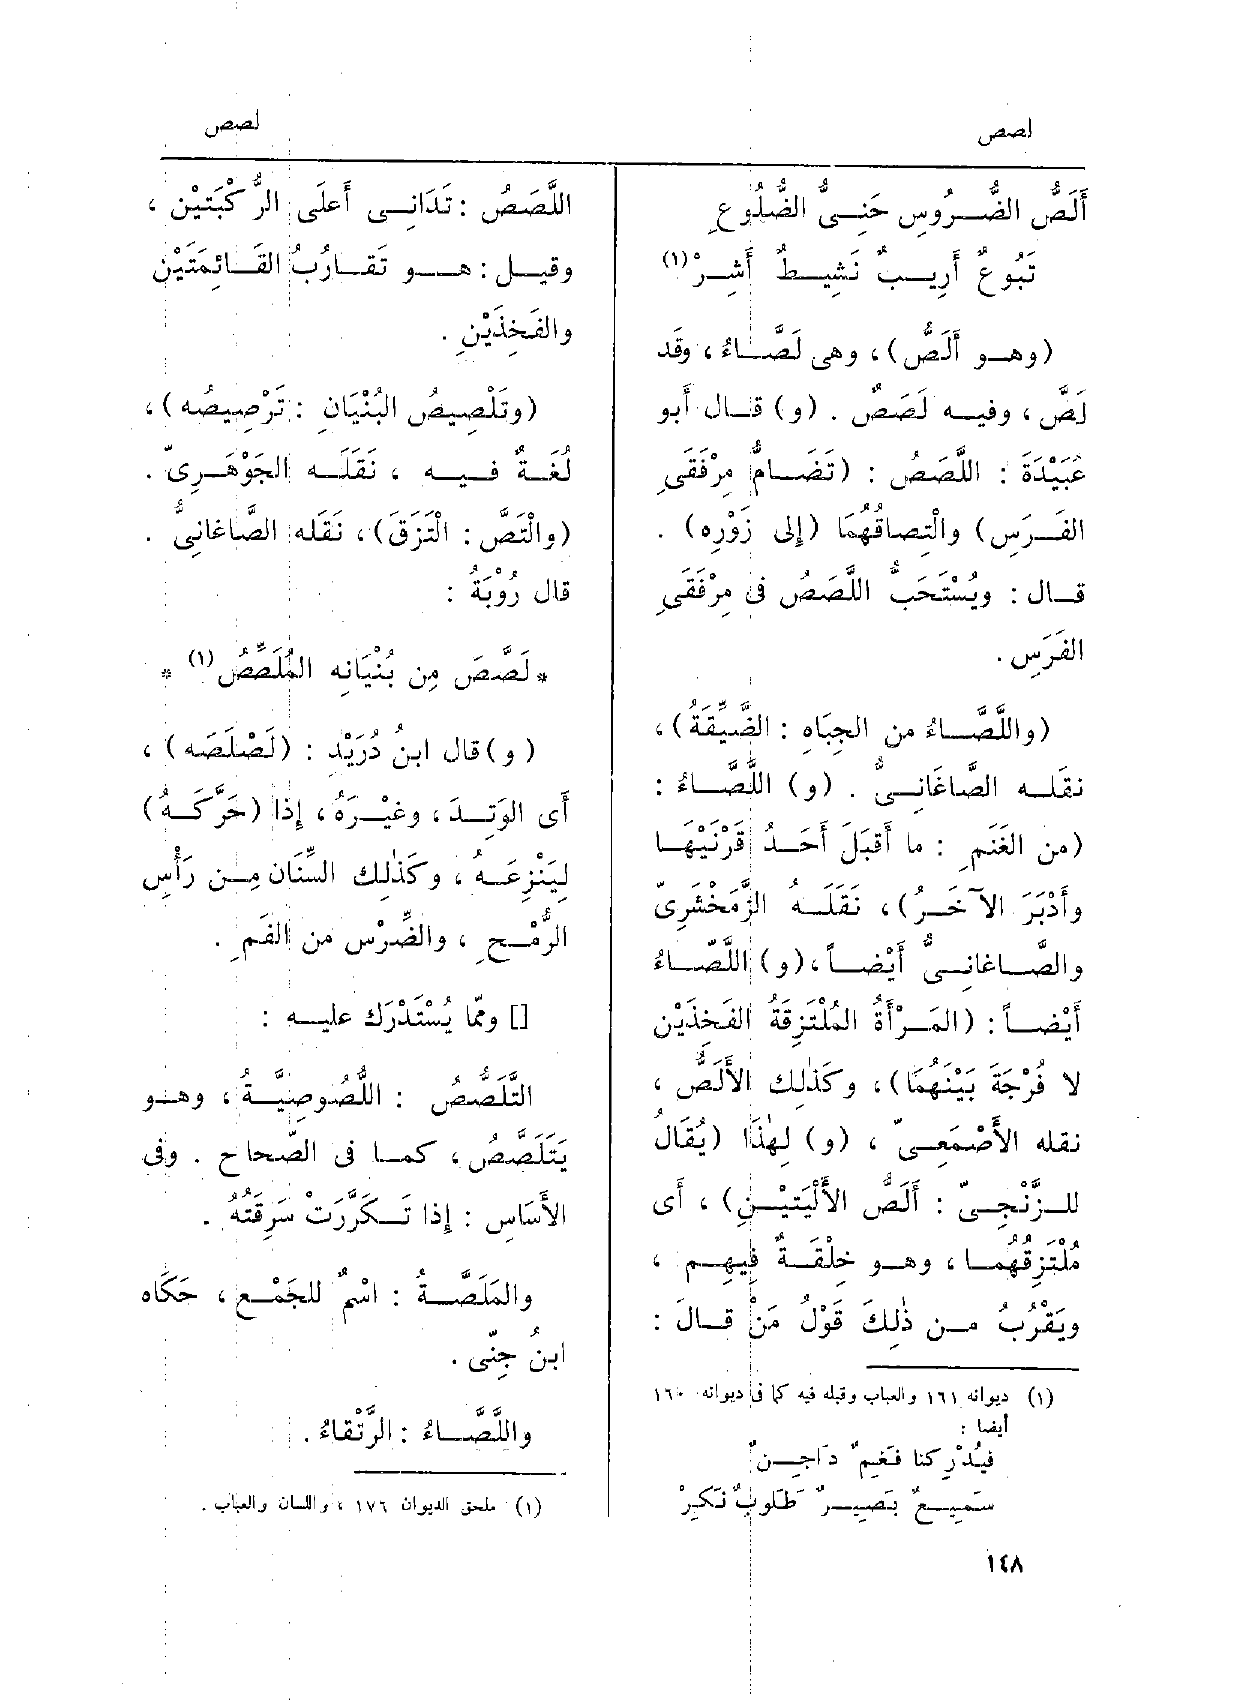 لصص
لصص
أَلَصُّ الضُّـرُوسِ حَنِـىُّ الضُّلُوعِ
تَبُوعٌ أَرِيـبٌ نَشِيـطٌ أَشِـرْ (١)
(وهـو أَلَصُّ) ، وهى لَصَّـاءُ ، وقَد
لَصَّ ، وفيـه لَصَصٌ . (و) قـال أَبو
عُبَيْدَةَ : اللَّصَصُ : (تَضَـامُّ مِرْفَقَىِ
الفَـرَسِ) والْتِصاقُهُمَا (إِلى زَوْرِه) .
قـال : ويُسْتَحَبُّ اللَّصَصُ فى مِرْفَقَىِ
الفَرَسِ .
(واللَّصَّـاءُ من الجِبَاهِ : الضَّيِّقَةُ) ،
نقلـه الصَّاغَانِـىُّ . (و) اللَّصَّـاءُ :
(من الغَنَمِ : ما أَقبَلَ أَحَـدُ قَرْنَيْهَـا
وأَدْبَرَ الآخَـرُ) ، نَقَلَـهُ الزَّمَخْشَرِىّ
والصَّـاغانِـىُّ أَيْضـاً ، (و) اللَّصّـاءُ
أَيْضـاً : (المَـرْأَةُ المُلْتَزِقَةُ الفَخِذَيْنِ
لا فُرْجَةَ بَيْنَهُمَا) ، وكَذٰلك الأَلَصُّ ،
نقله الأَصْمَعِـىّ ، (و) لِهٰذَا (يُقَالُ
للـزَّنْجِـىّ : أَلَصُّ الأَلْيَتَيْـنِ) ، أَى
مُلْتَزِقُهُمـا ، وهـو خِلْقَـةٌ فِيهِـم ،
ويَقْرُبُ مـن ذٰلِكَ قَوْلُ مَنْ قـالَ :
(١) ديوانه ١٦١ والعباب وقبله فيه كما فى ديوانه ١٦٠
أيضا :
فيُدْرِكنا فَغِمٌ دَاجِـنٌ
سَمِيـعٌ بَصِيـرٌ طَلُوبٌ نَكِرْ
١٤٨
اللَّصَصُ : تَدَانِـى أَعلَى الرُّكْبَتَيْنِ ،
وقيـل : هـو تَقَـارُبُ القَـائِمَتَيْنِ
والفَخِذَيْنِ .
(وتَلْصِيصُ البُنْيَانِ : تَرْصِيصُه) ،
لُغَـةٌ فـيـه ، نَقَلَـه الجَوْهَـرِىّ .
(والْتَصَّ : الْتَزَقَ) ، نَقَله الصَّاغانِىُّ .
قال رُوْبَةُ :
* لَصَّصَ مِن بُنْيَانِه المُلَصِّصُ (١) *
(و) قال ابنُ دُرَيْد : (لَصْلَصَه) ،
أَى الوَتِـدَ ، وغيْـرَهُ ، إِذا (حَرَّكَـهُ)
لِيَنْزِعَـهُ ، وكَذٰلك السِّنَان مِـن رَأْسِ
الرُّمْـحِ ، والضِّرْس من الفَمِ .
[] وممّا يُسْتَدْرَك عليـه :
التَّلَصُّصُ : اللُّصُوصِيَّـةُ ، وهـو
يَتَلَصَّصُ ، كمـا فى الصّحاح . وفى
الأَسَاسِ : إِذا تَـكَرَّرَت سَرِقَتُهُ .
والمَلَصَّـةُ : اسْمٌ للجَمْـع ، حَكَاه
ابنُ جِنِّى .
واللَّصَّـاءُ : الرَّتْقاءُ .
(١) ملحق الديوان ١٧٦ ، واللسان والعباب .